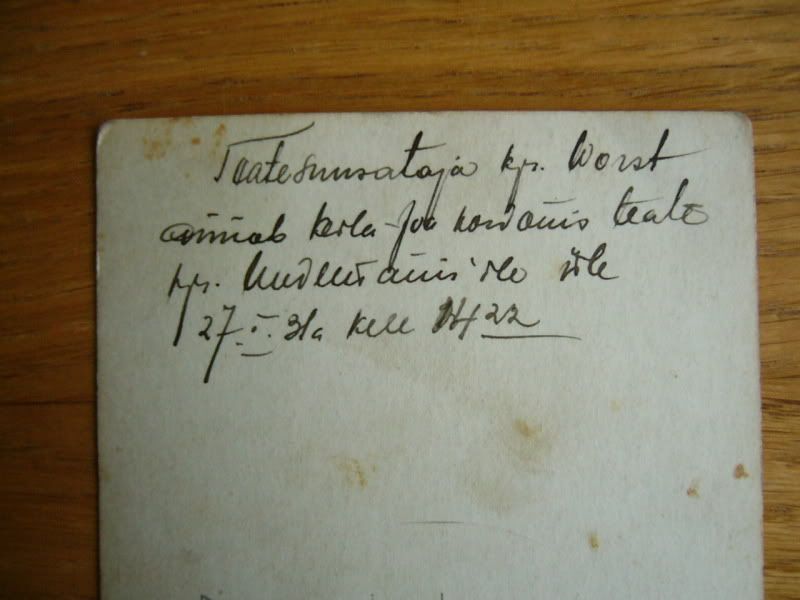 Teatesuusataja kpr. Worst
annab Keila-Joa kordonis teate
kpr. üle
27. I. 31a kell 14 22